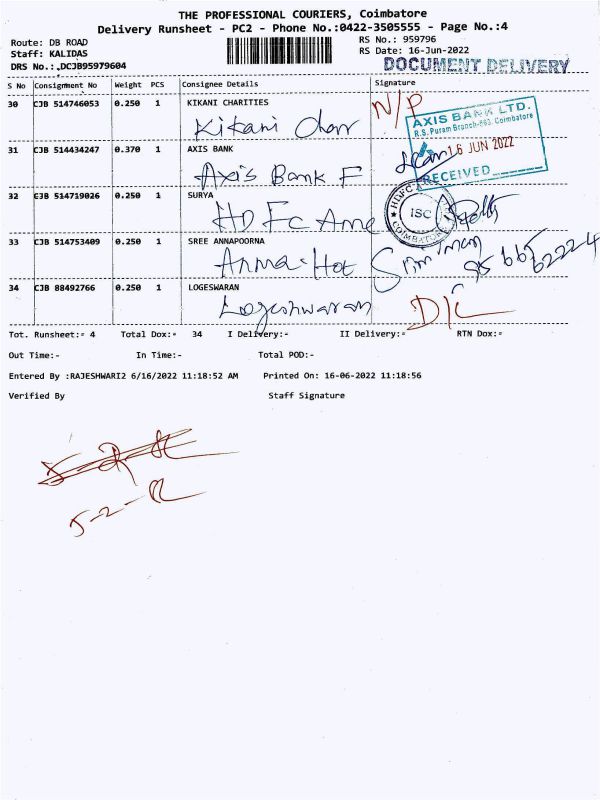 THE PROFESSIONAL COURIERS, Coimbatore
Delivery Runsheet - PC2 - Phone No.:0422-3505555 - Page No.:4
Route: DB ROAD
RS No.: 959796
Staff: KALIDAS
RS Date: 16-Jun-2022
DRS No.:.DCJB95979604
DOCUMENT DELIVERY
S No Consignment No Weight PCS Consignee Details Signature
30 CJB 514746053 0.250 1 KIKANI CHARITIES N/P
Kikani Charr
AXIS BANK LTD.
R.S. Puram Branch-693. Coimbatore
16 JUN 2022
RECEIVED
31 CJB 514434247 0.370 1 AXIS BANK
Axis Bank F
32 CJB 514719026 0.250 1 SURYA
HDFC Ame
HDFC
ISC
COIMBATORE
33 CJB 514753409 0.250 1 SREE ANNAPOORNA
Anna-Hot
34 CJB 88492766 0.250 1 LOGESWARAN
Logeshwaran D/L
Tot. Runsheet:- 4 Total Dox:- 34 I Delivery:- II Delivery:- RTN Dox:-
Out Time:- In Time:- Total POD:-
Entered By :RAJESHWARI2 6/16/2022 11:18:52 AM Printed On: 16-06-2022 11:18:56
Verified By Staff Signature
5-2-R